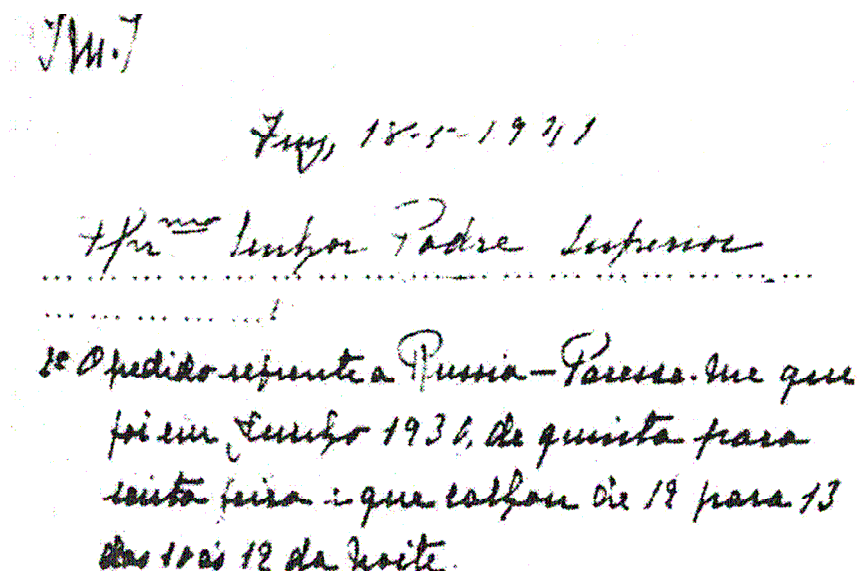 J.M.J
Tuy, 18-5-1941
Senhor Padre Superior
1º O pedido referente a Russia - Paresse-me que
foi em Junho 193 , de quinta para
sexta feira e que calhou de 12 para 13
das 10 às 12 da Noite.